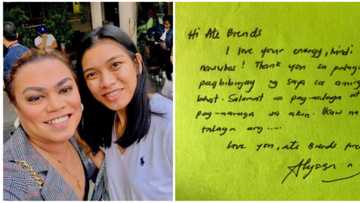 Hi Ate Brends
I love your energy, hindi
nauubos! Thank you sa patuloy
pagbibigay ng saya sa aming
lahat. Salamat sa pag-aalaga at
sa akin. Ikaw na
talaga ang ....
Love you, ate Brends